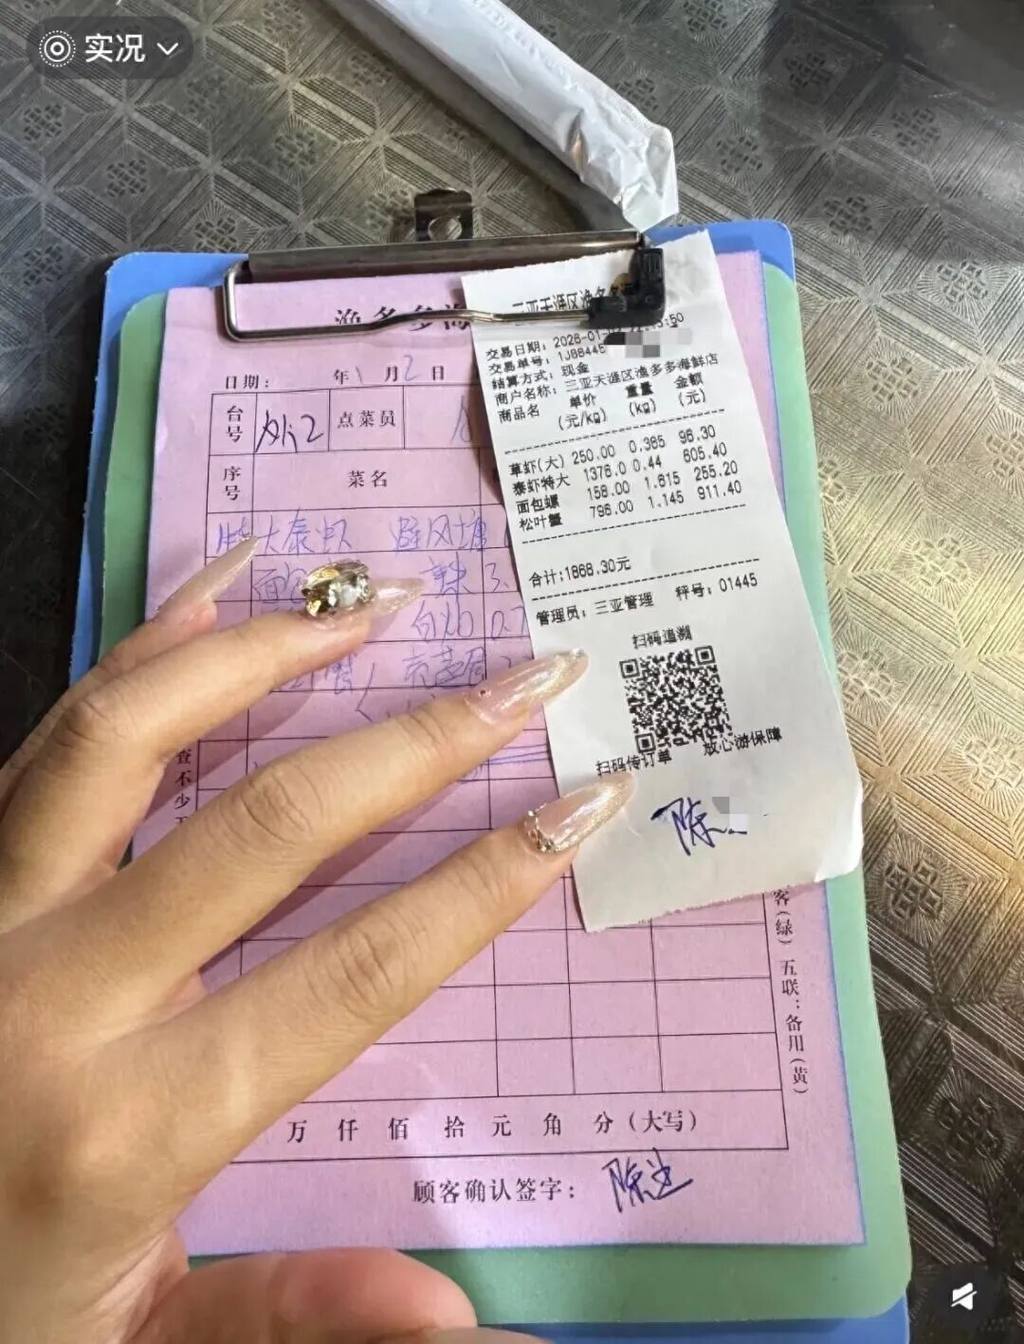 实况
渔多多海
日期: 年1月2日
台号 外2 点菜员
序号 菜名
特大泰虾 避风塘
面包
白灼 0.7
查不少
客(绿) 五联:备用(黄)
万 仟 佰 拾 元 角 分(大写)
顾客确认签字:
三亚天涯区渔多
交易日期: 2026-01- :50
交易单号: 1J88445
结算方式: 现金
商户名称: 三亚天涯区渔多多海鲜店
商品名 单价(元/kg) 重量(kg) 金额(元)
草虾(大) 250.00 0.385 96.30
泰虾特大 1376.0 0.44 605.40
面包螺 158.00 1.615 255.20
松叶蟹 796.00 1.145 911.40
合计:1868.30元
管理员: 三亚管理 秤号: 01445
扫码追溯
扫码传订单 放心游保障
陈